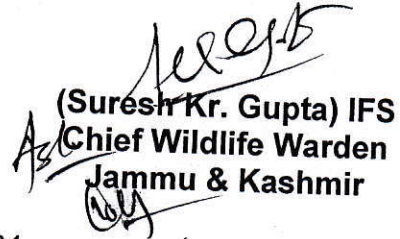 (Suresh Kr. Gupta) IFS
Chief Wildlife Warden
Jammu & Kashmir